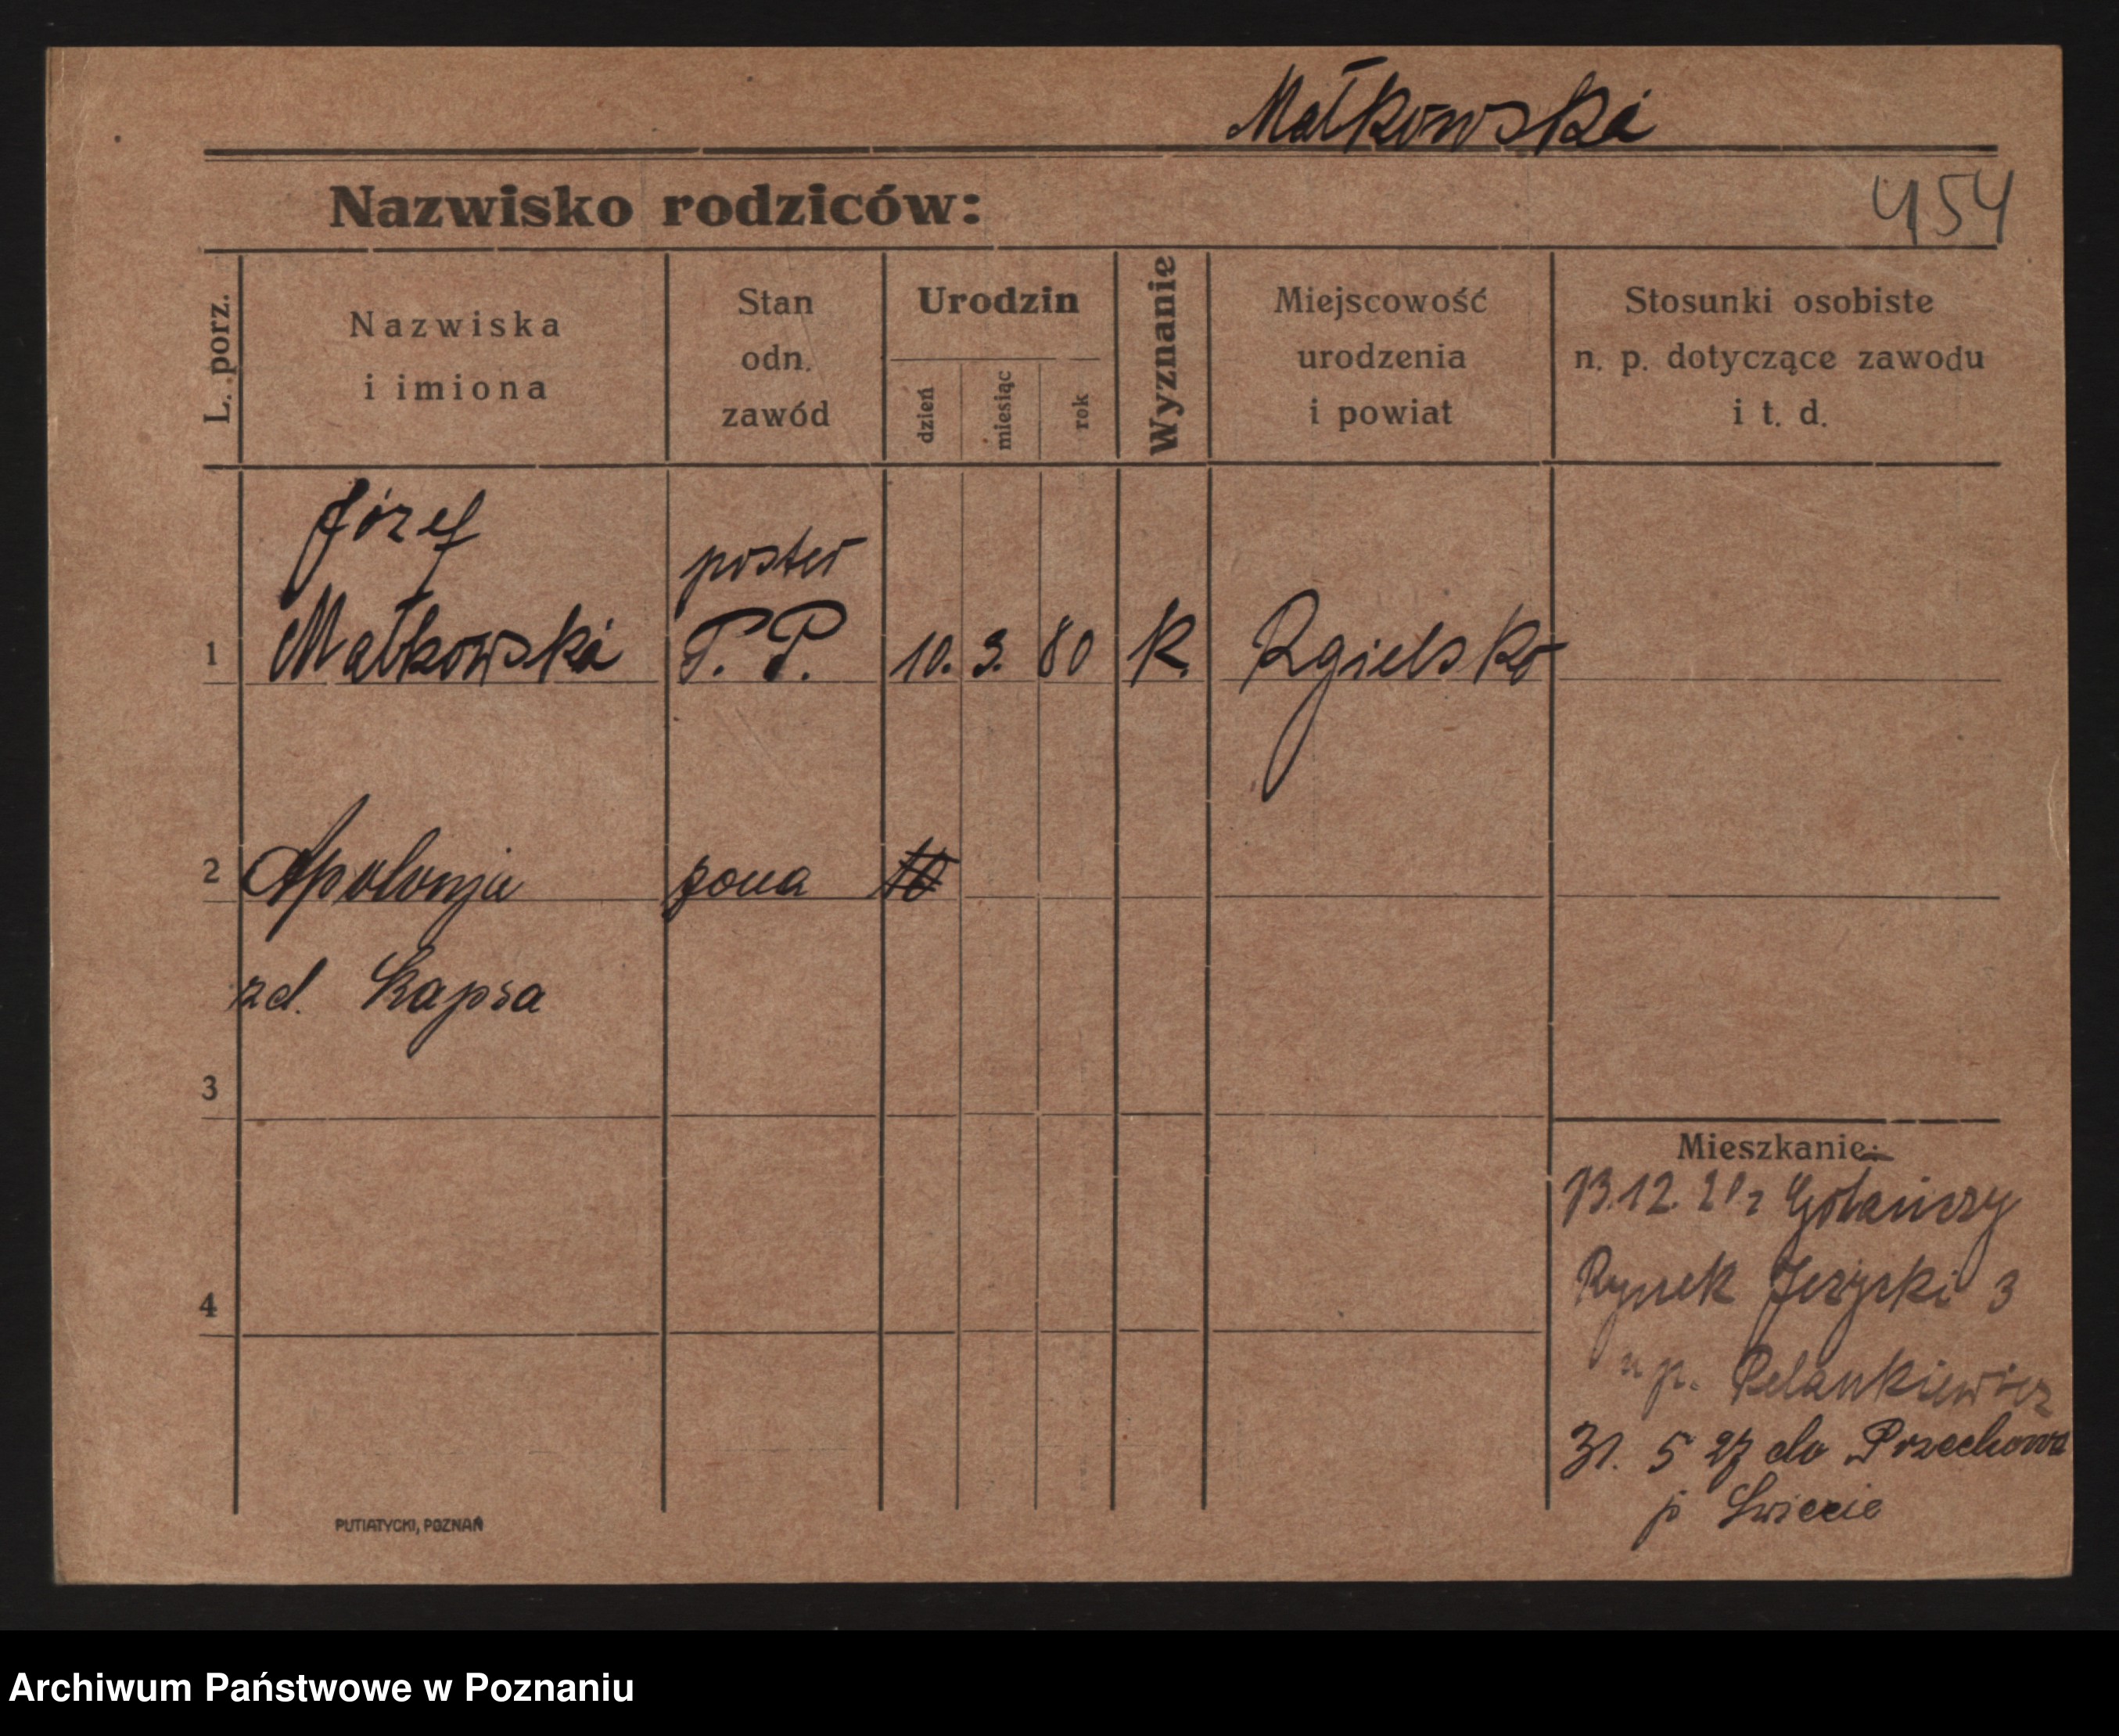 Małkowski
Nazwisko rodziców:
454
L. porz.
Nazwiska
i imiona
Stan
odn.
zawód
Urodzin
dzień
miesiąc
rok
Wyznanie
Miejscowość
urodzenia
i powiat
Stosunki osobiste
n. p. dotyczące zawodu
i t. d.
1
Józef
Małkowski
poster
P. P.
10.
3.
80
K.
Rgielsko
2
Apolonja
żona
zd. Kapsa
3
4
Mieszkanie:
13.12. z Gołańczy
Rynek Jeżycki 3
u p.
31. 5 27 do Przechowa
p Świecie
PUTIATYCKI, POZNAŃ
Archiwum Państwowe w Poznaniu